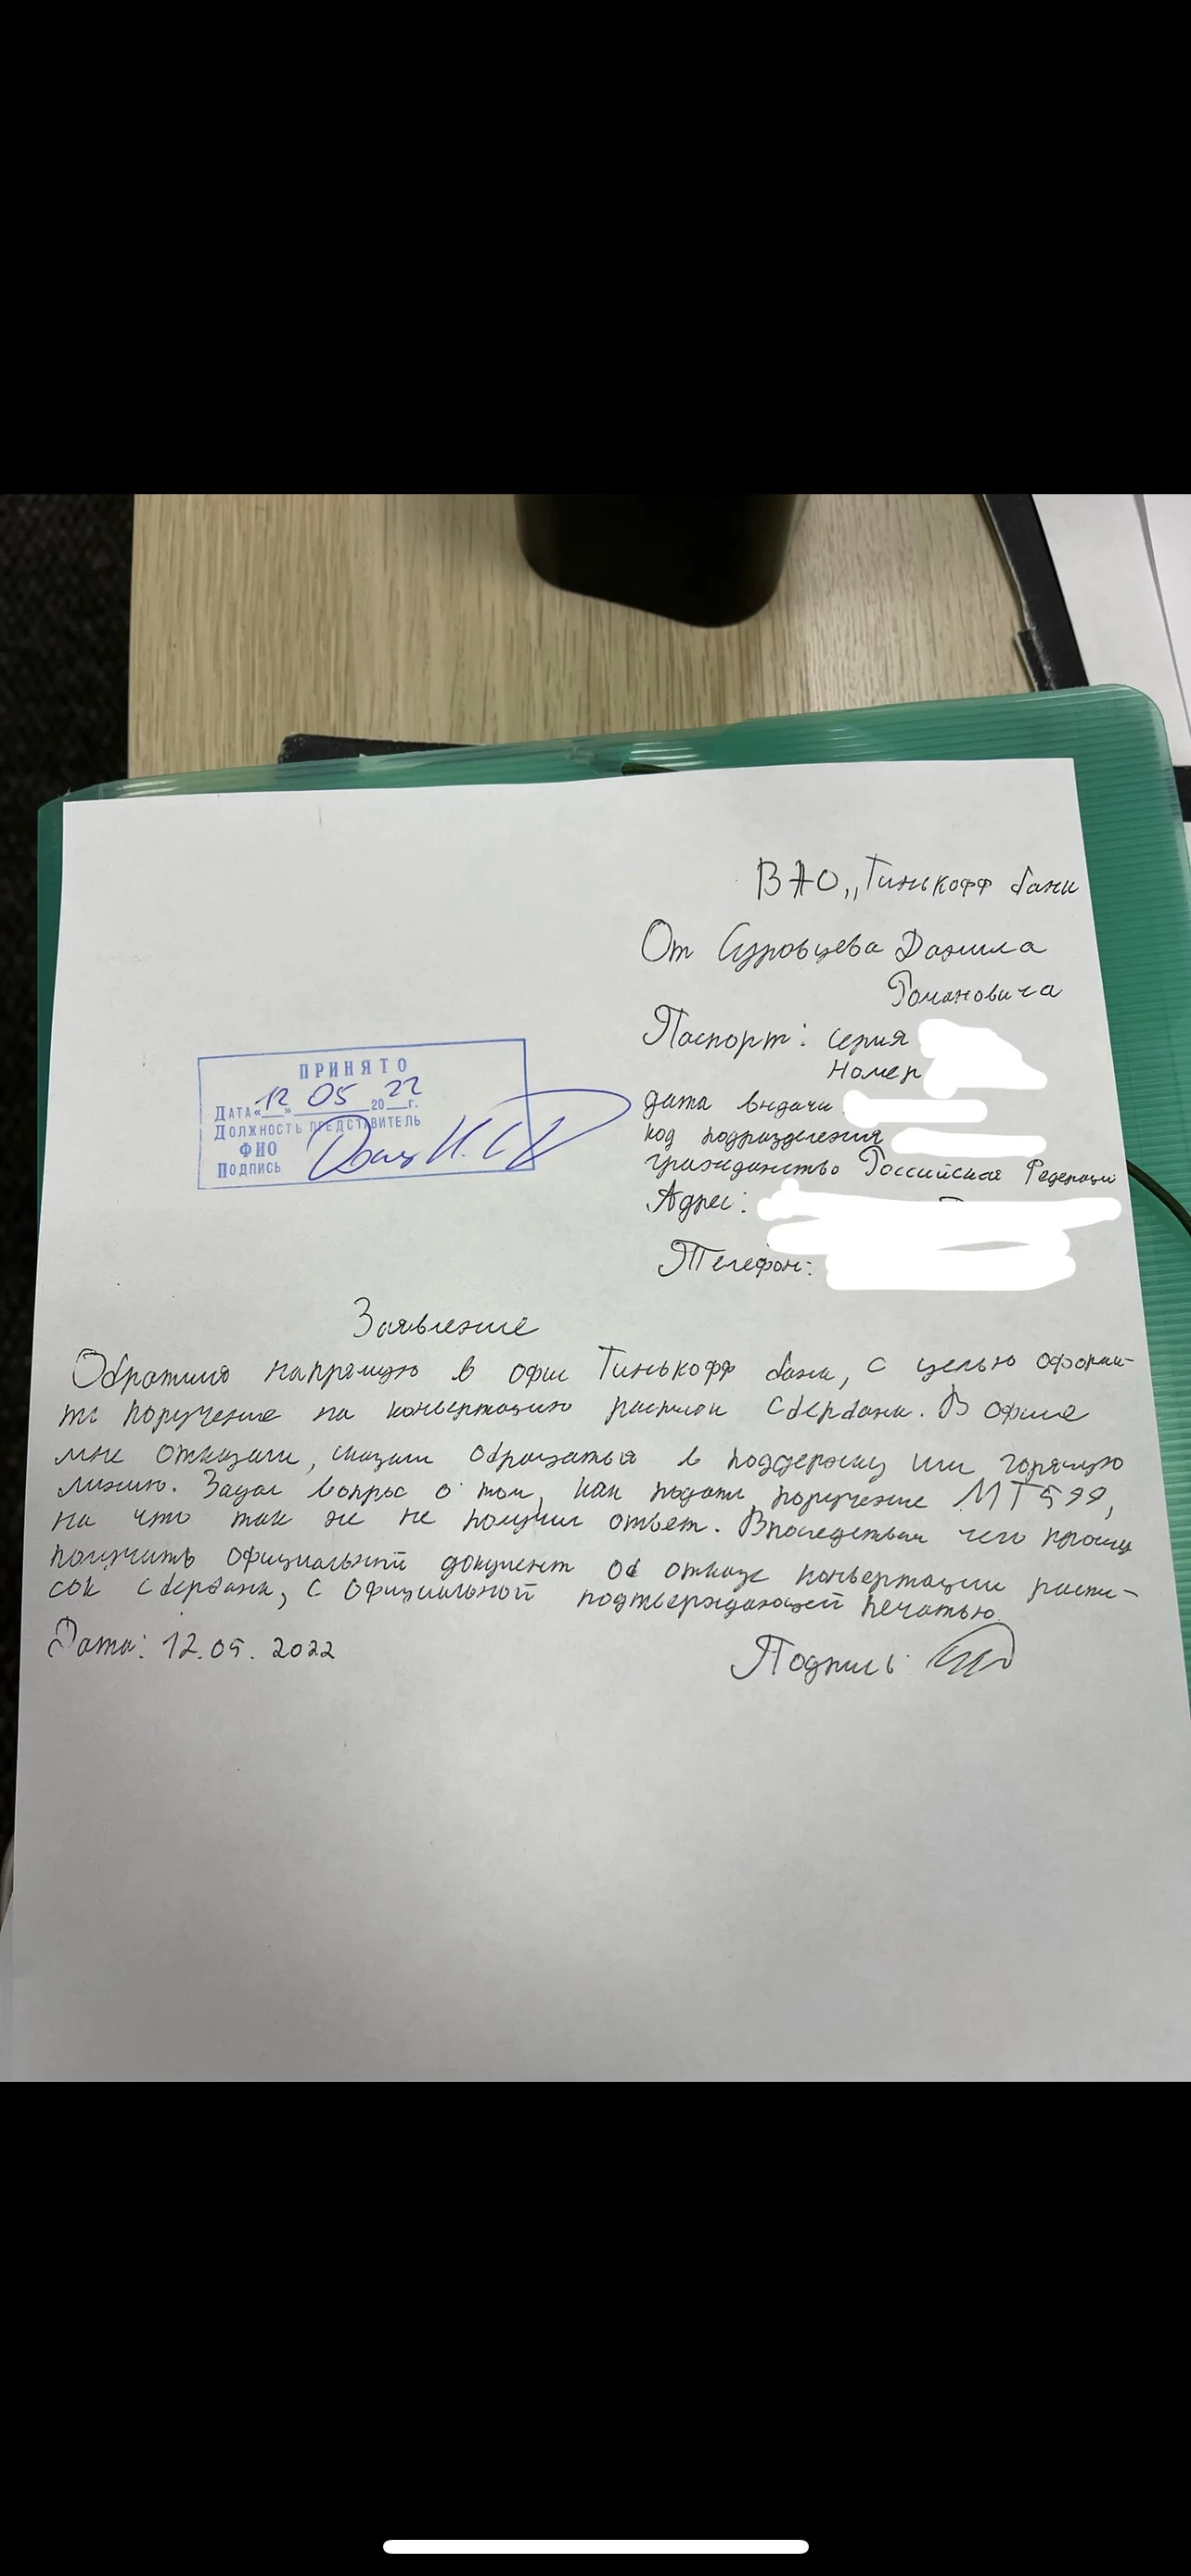 В АО „Тинькофф банк
От Суровцева Данила
Романовича
Паспорт: серия
Номер
дата выдачи
код подразделения
гражданство Российской Федерации
Адрес:
Телефон:
ПРИНЯТО
ДАТА «12» 05 2022 г.
ДОЛЖНОСТЬ ПРЕДСТАВИТЕЛЬ
ФИО
ПОДПИСЬ
Заявление
Обратился напрямую в офис Тинькофф банка, с целью оформи-
ть поручение на конвертацию расписок Сбербанк. В офисе
мне отказали, сказали обращаться в поддержку или горячую
линию. Задал вопрос о том, как подать поручение МТ599,
на что так же не получил ответ. Впоследствии чего прошу
получить официальный документ об отказе конвертации распи-
сок Сбербанк, с официальной подтверждающей печатью.
Дата: 12.05.2022
Подпись: